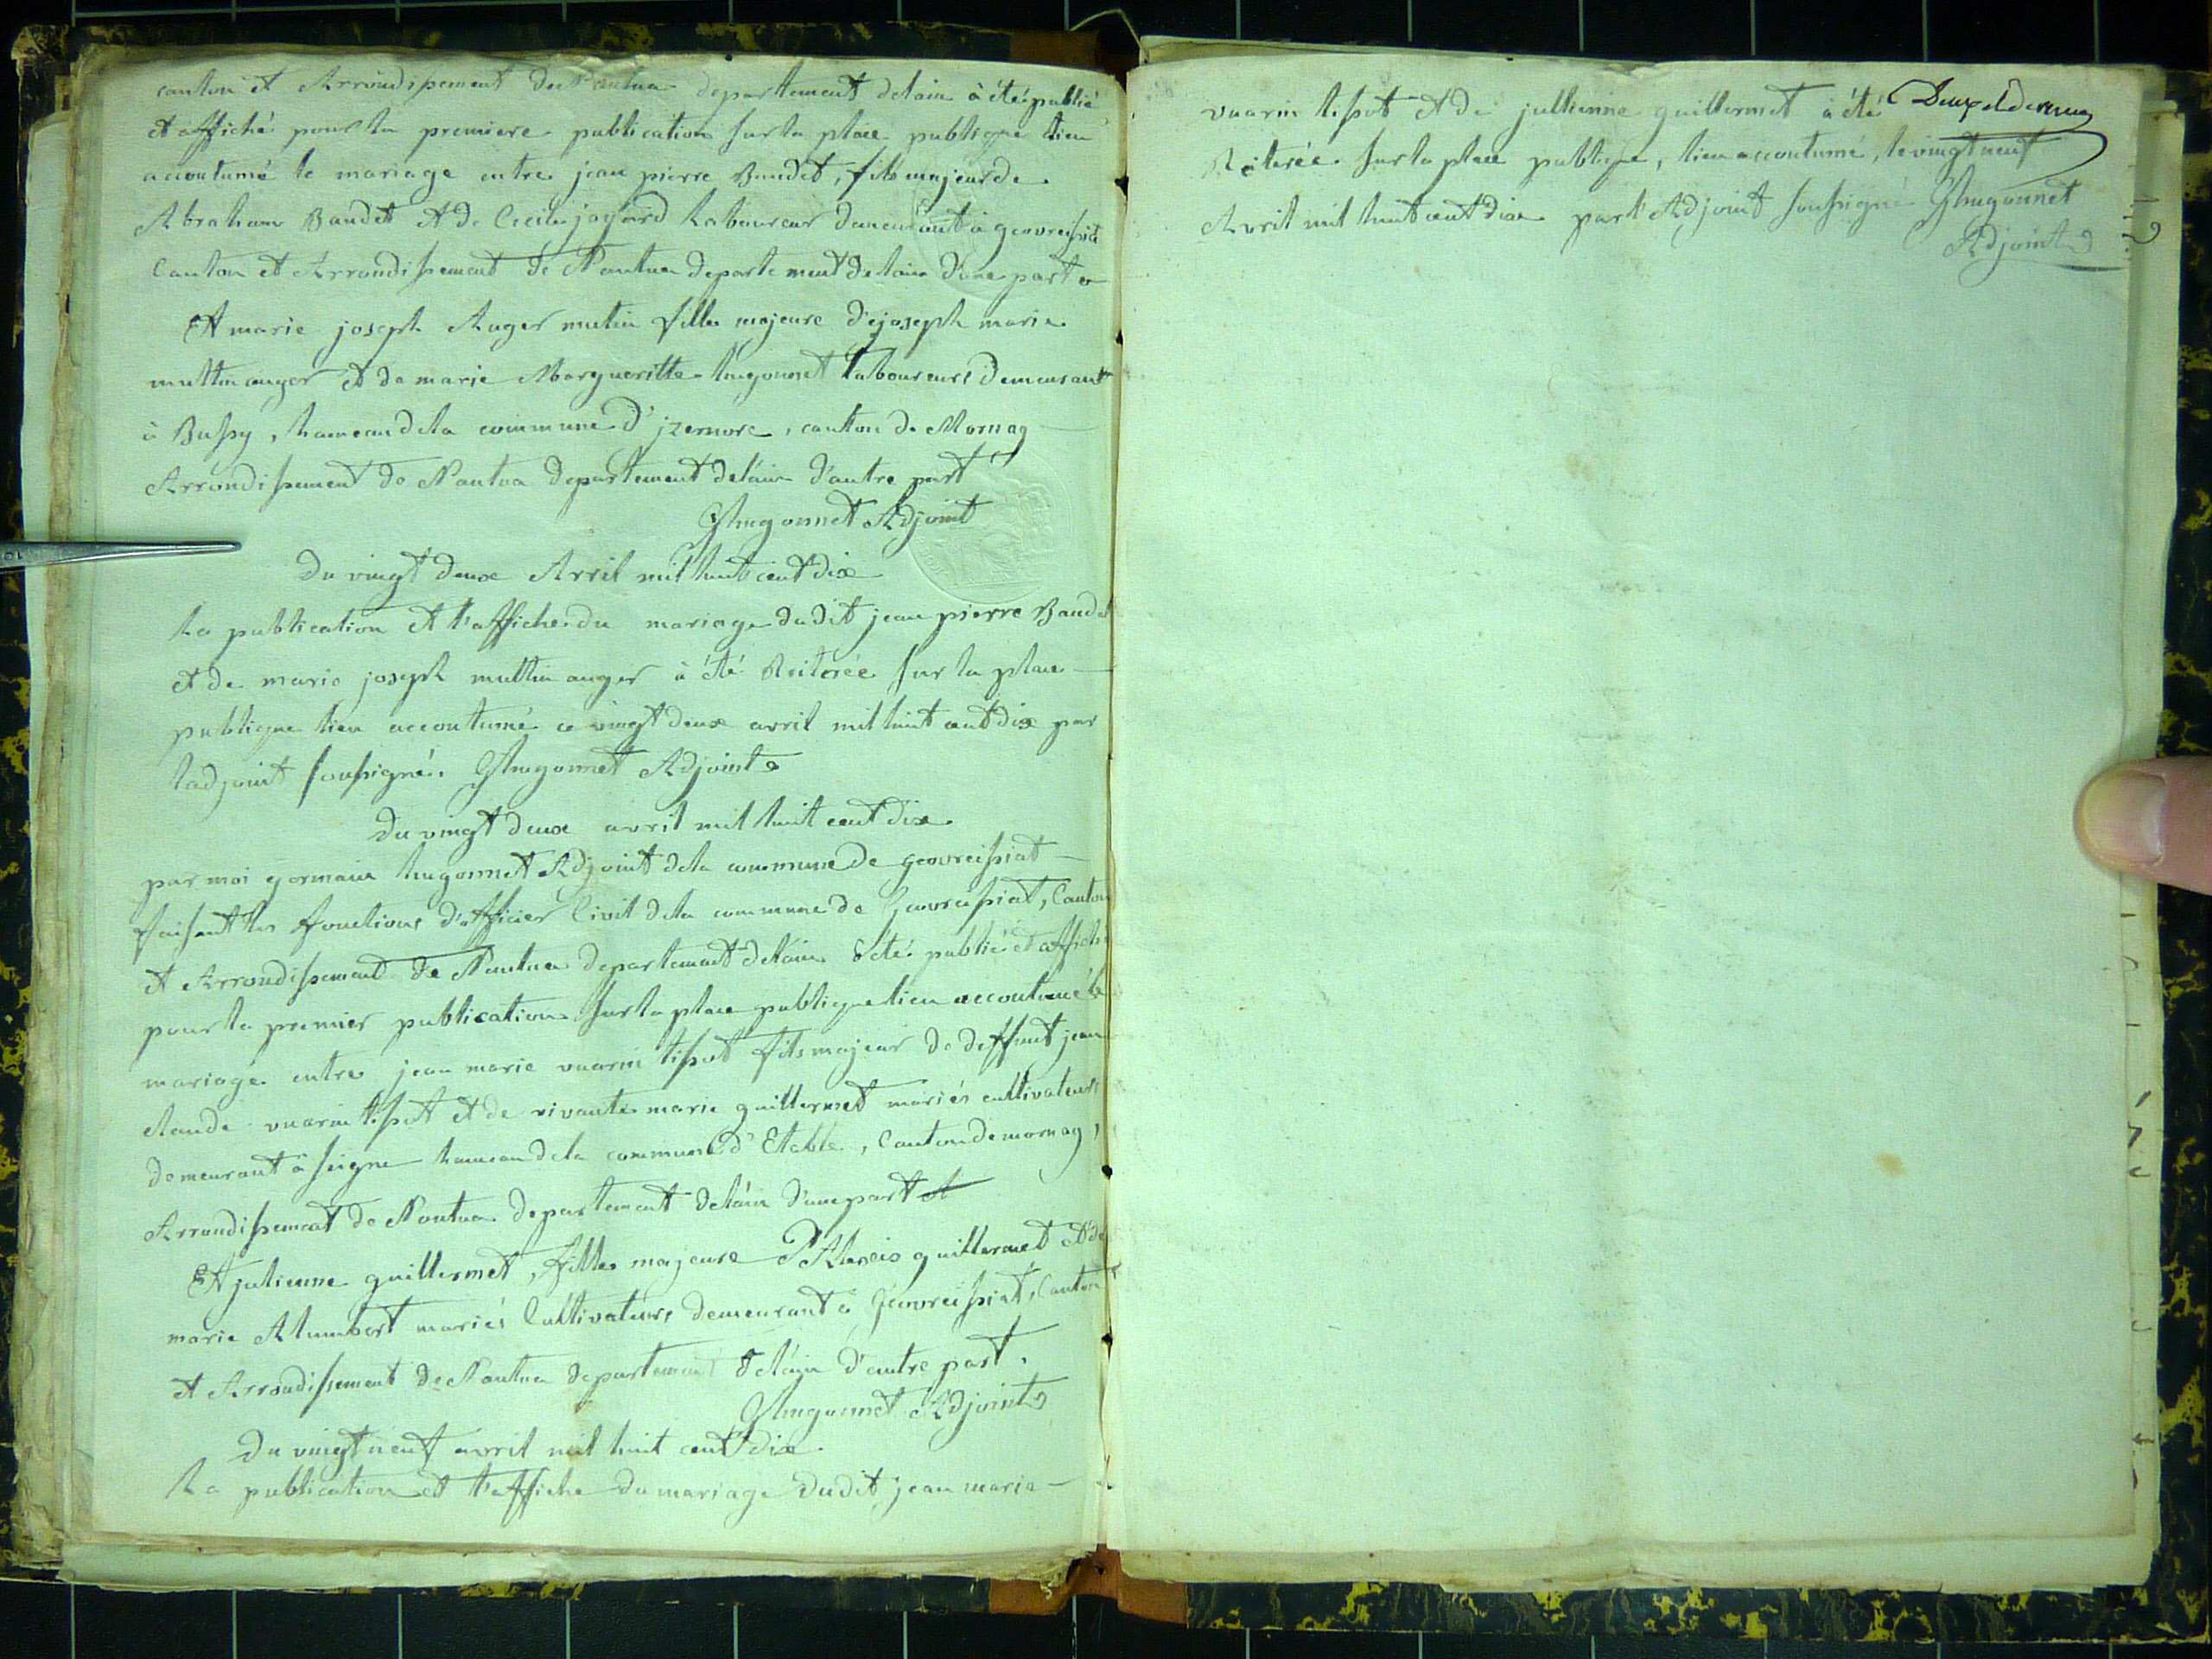 canton et Arrondissement de Nantua departement delain à été publié
et affiché pour la premiere publication sur la place publique lieu
accoutumé le mariage entre jean pierre Baudet, fils majeur de
Abraham Baudet et de Cecile Laboureur demeurant à geovreissiat
Canton et Arrondissement de Nantua departement delain d'une part
Et marie joseph Auger mutin fille majeure dejoseph marie
muttin auger et de marie Margueritte hugonnet Laboureurs Demeurant
à Bussy, hameau dela commune d'jzernore, canton de Mornay
Arrondissement de Nantua departement delain d'autre part
Ghugonnet Adjoint
Du vingt deux Avril mil huit cent dix
La publication et l'affiche du mariage dudit jean pierre Baudet
et de marie joseph muttin auger à été Reiterée sur la place
publique lieu accoutumé ce vingt deux avril mil huit cent dix par
ladjoint soussigné. Ghugonnet Adjoint
Du vingt deux avril mil huit cent dix
par moi germain hugonnet Adjoint dela commune de geovreissiat
faisant les fonctions d'officier Civil dela commune de Geovreissiat, Canton
et Arrondissement de Nantua departement delain à été publié et affiché
pour la premier publication sur la place publique lieu accoutumé le
mariage entre jean marie vuarin tissot fils majeur de deffunt jean
claude vuarin tissot et de vivante marie guillermet mariés cultivateurs
demeurant à seigne hameau dela commune d'Etable, Canton de mornay,
Arrondissement de Nantua departement delain d'une part et
Et julienne guillermet, fille majeure d'Alexis guillermet et de
marie Alumbert mariés Cultivateurs demeurant à Geovreissiat, Canton
et Arrondissement de Nantua departement delain d'autre part.
Ghugonnet Adjoint
Du vingt neuf avril mil huit cent dix
La publication et l'affiche du mariage dudit jean marie
vuarin tissot et de jullienne guillermet à été
Reiterée sur la place publique, lieu accoutumé, le vingt neuf
Avril mil huit cent dix par l'Adjoint soussigné Ghugonnet
Adjoint